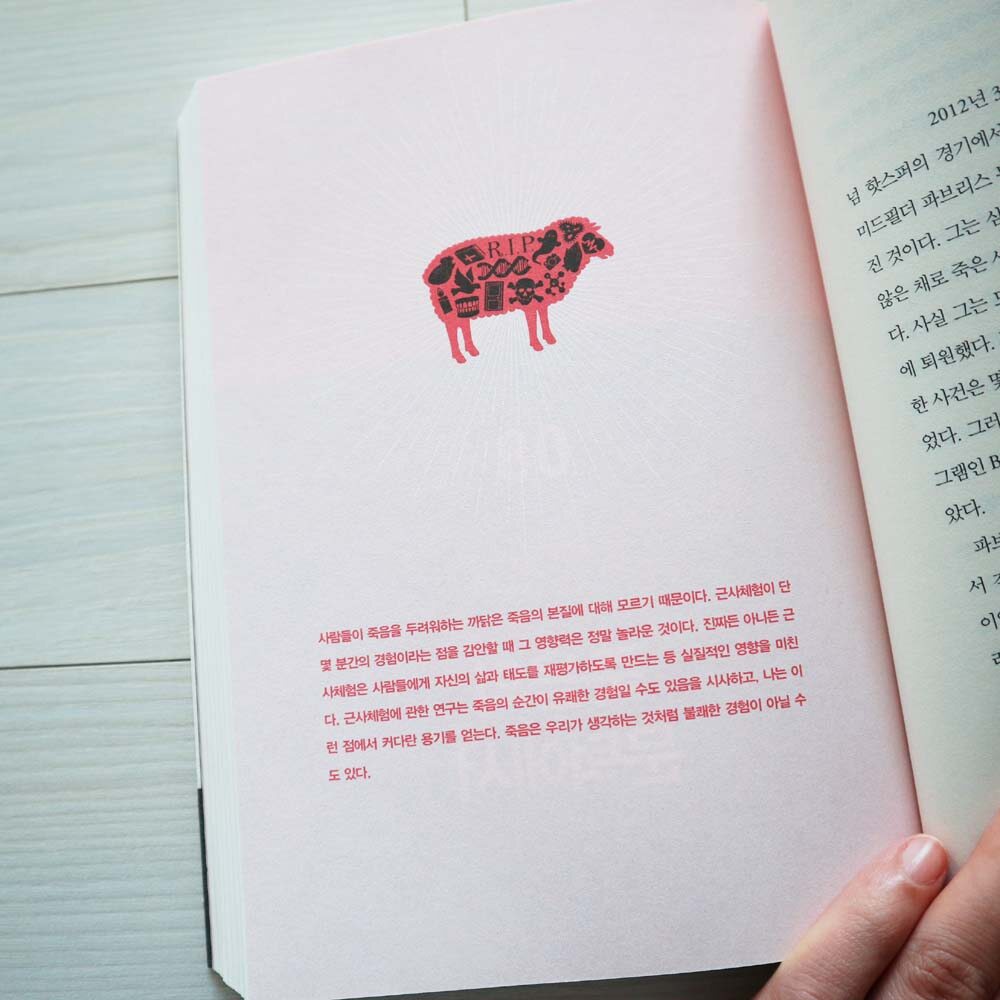 R.I.P
사람들이 죽음을 두려워하는 까닭은 죽음의 본질에 대해 모르기 때문이다. 근사체험이 단
몇 분간의 경험이라는 점을 감안할 때 그 영향력은 정말 놀라운 것이다. 진짜든 아니든 근
사체험은 사람들에게 자신의 삶과 태도를 재평가하도록 만드는 등 실질적인 영향을 미친
다. 근사체험에 관한 연구는 죽음의 순간이 유쾌한 경험일 수도 있음을 시사하고, 나는 이
런 점에서 커다란 용기를 얻는다. 죽음은 우리가 생각하는 것처럼 불쾌한 경험이 아닐 수
도 있다.
2012년 3
넘 핫스퍼의 경기에서
미드필더 파브리스
진 것이다. 그는 심
않은 채로 죽은 사
다. 사실 그는
에 퇴원했다.
한 사건은 몇
었다. 그러
그램인 B
았다.
파브
서
이